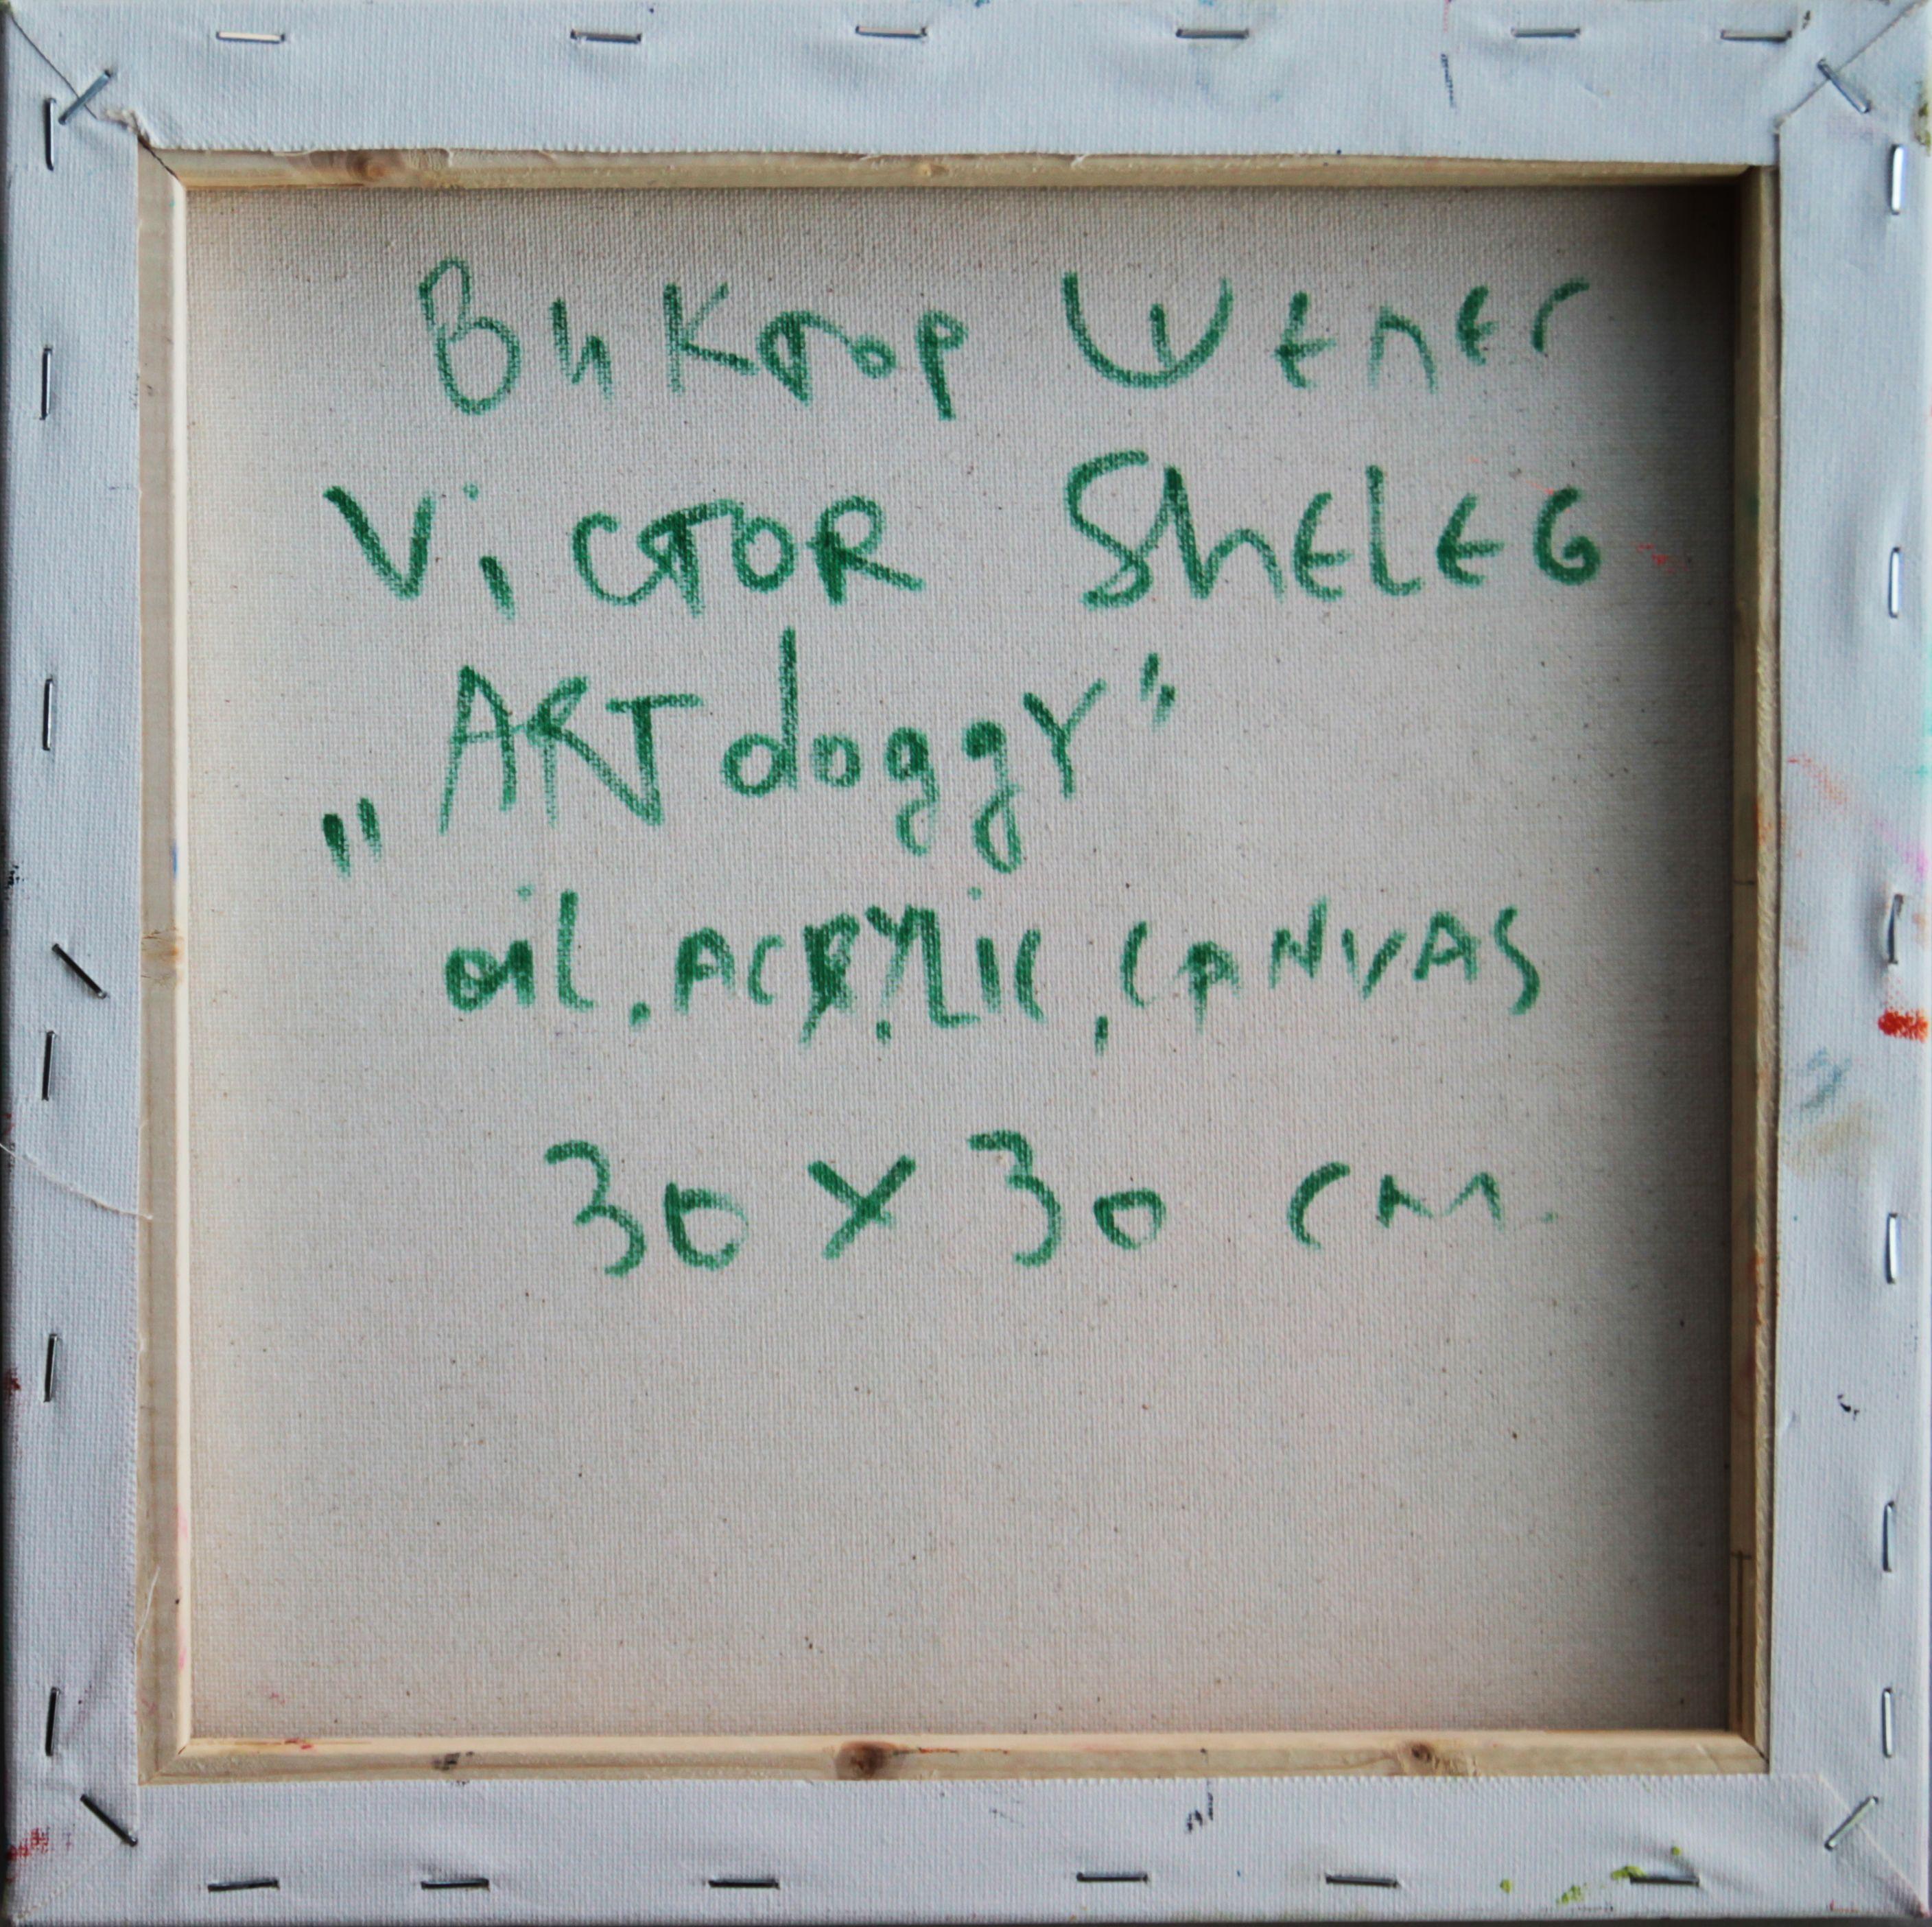 Виктор Шелег
VicTOR ShElEG
„ARTdoggy"
oil, ACRYLic, CANVAS
30 x 30 cm.